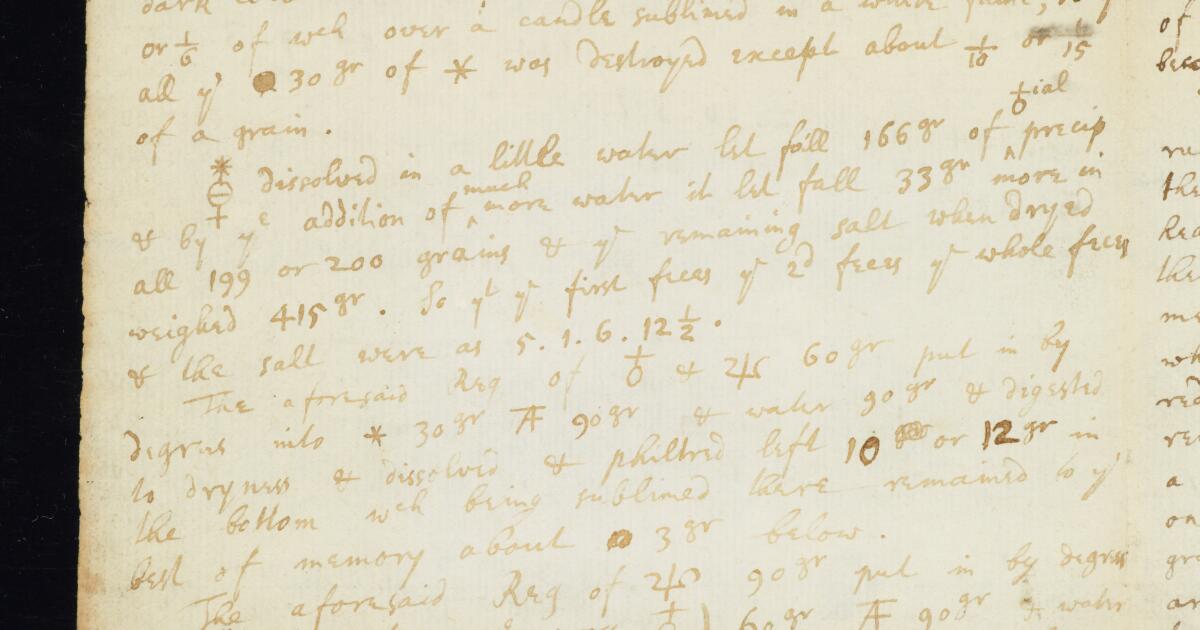 or 1/6 of wch over a candle sublimed in a white fume,
all yt 30gr of ✱ was destroyed except about 1/10 or 1/15
of a grain.
✱ dissolved in a little water let fall 166gr of ♁ial precip
& by ye addition of much more water it let fall 33gr more in
all 199 or 200 grains & ye remaining salt when dryed
weighed 415gr. So yt ye first feces ye 2d feces ye whole feces
& the salt were as 5. 1. 6. 12 1/2.
The aforesaid Reg of ♁ & ♃ 60gr put in by
degrees into ✱ 30gr 90gr & water 90gr & digested
to dryness & dissolved & philtred left 10 or 12gr in
the bottom wch being sublimed there remained to ye
best of memory about 3gr below.
The aforesaid Reg of 90gr put in by degrees
60gr 90gr & water